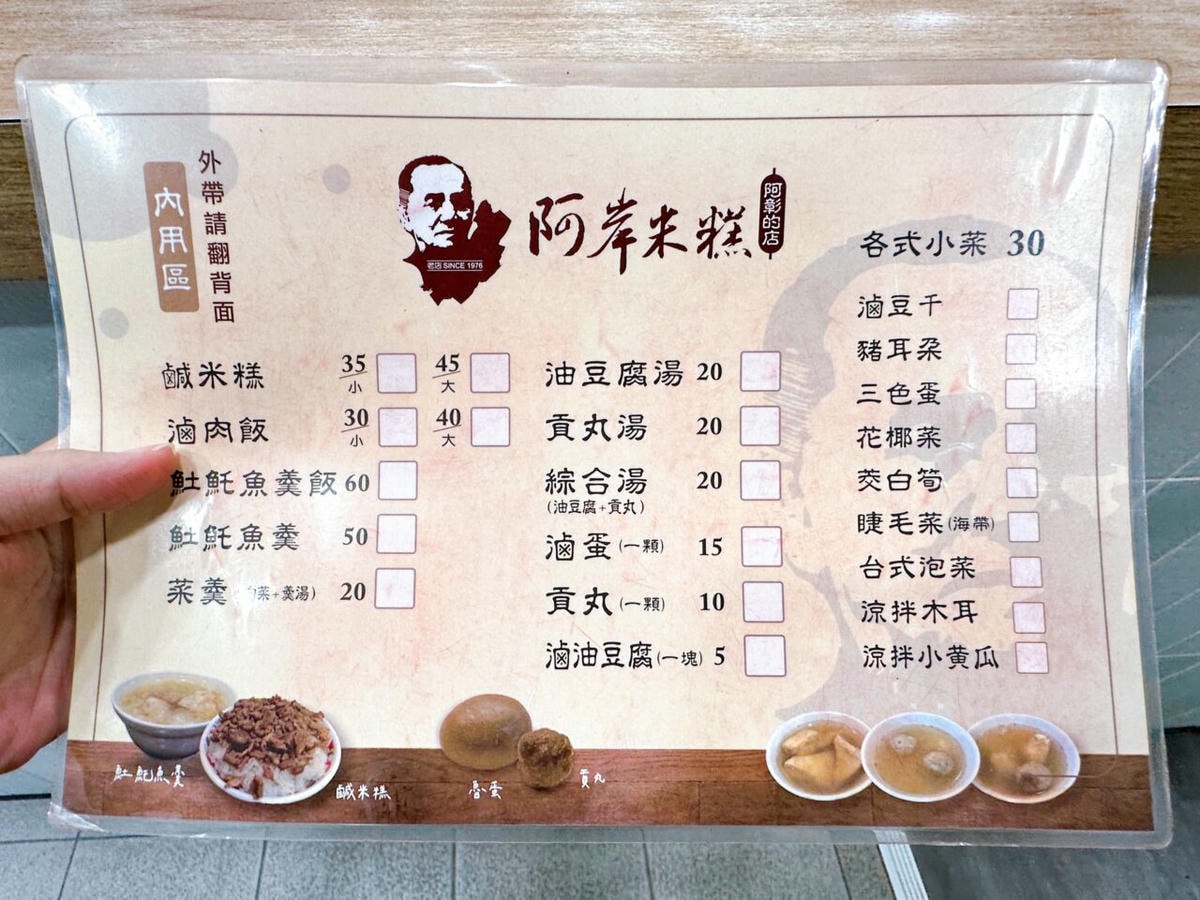 內用區
外帶請翻背面
老店 SINCE 1976
阿岸米糕
阿彰的店
鹹米糕 35 小 45 大
滷肉飯 30 小 40 大
魠魚羹飯 60
魠魚羹 50
菜羹 菜+羹湯) 20
油豆腐湯 20
貢丸湯 20
綜合湯 20
(油豆腐+貢丸)
滷蛋(一顆) 15
貢丸(一顆) 10
滷油豆腐(一塊) 5
各式小菜 30
滷豆干
豬耳朵
三色蛋
花椰菜
茭白筍
睫毛菜(海帶)
台式泡菜
涼拌木耳
涼拌小黃瓜
魠魚羹
鹹米糕
魯蛋
貢丸